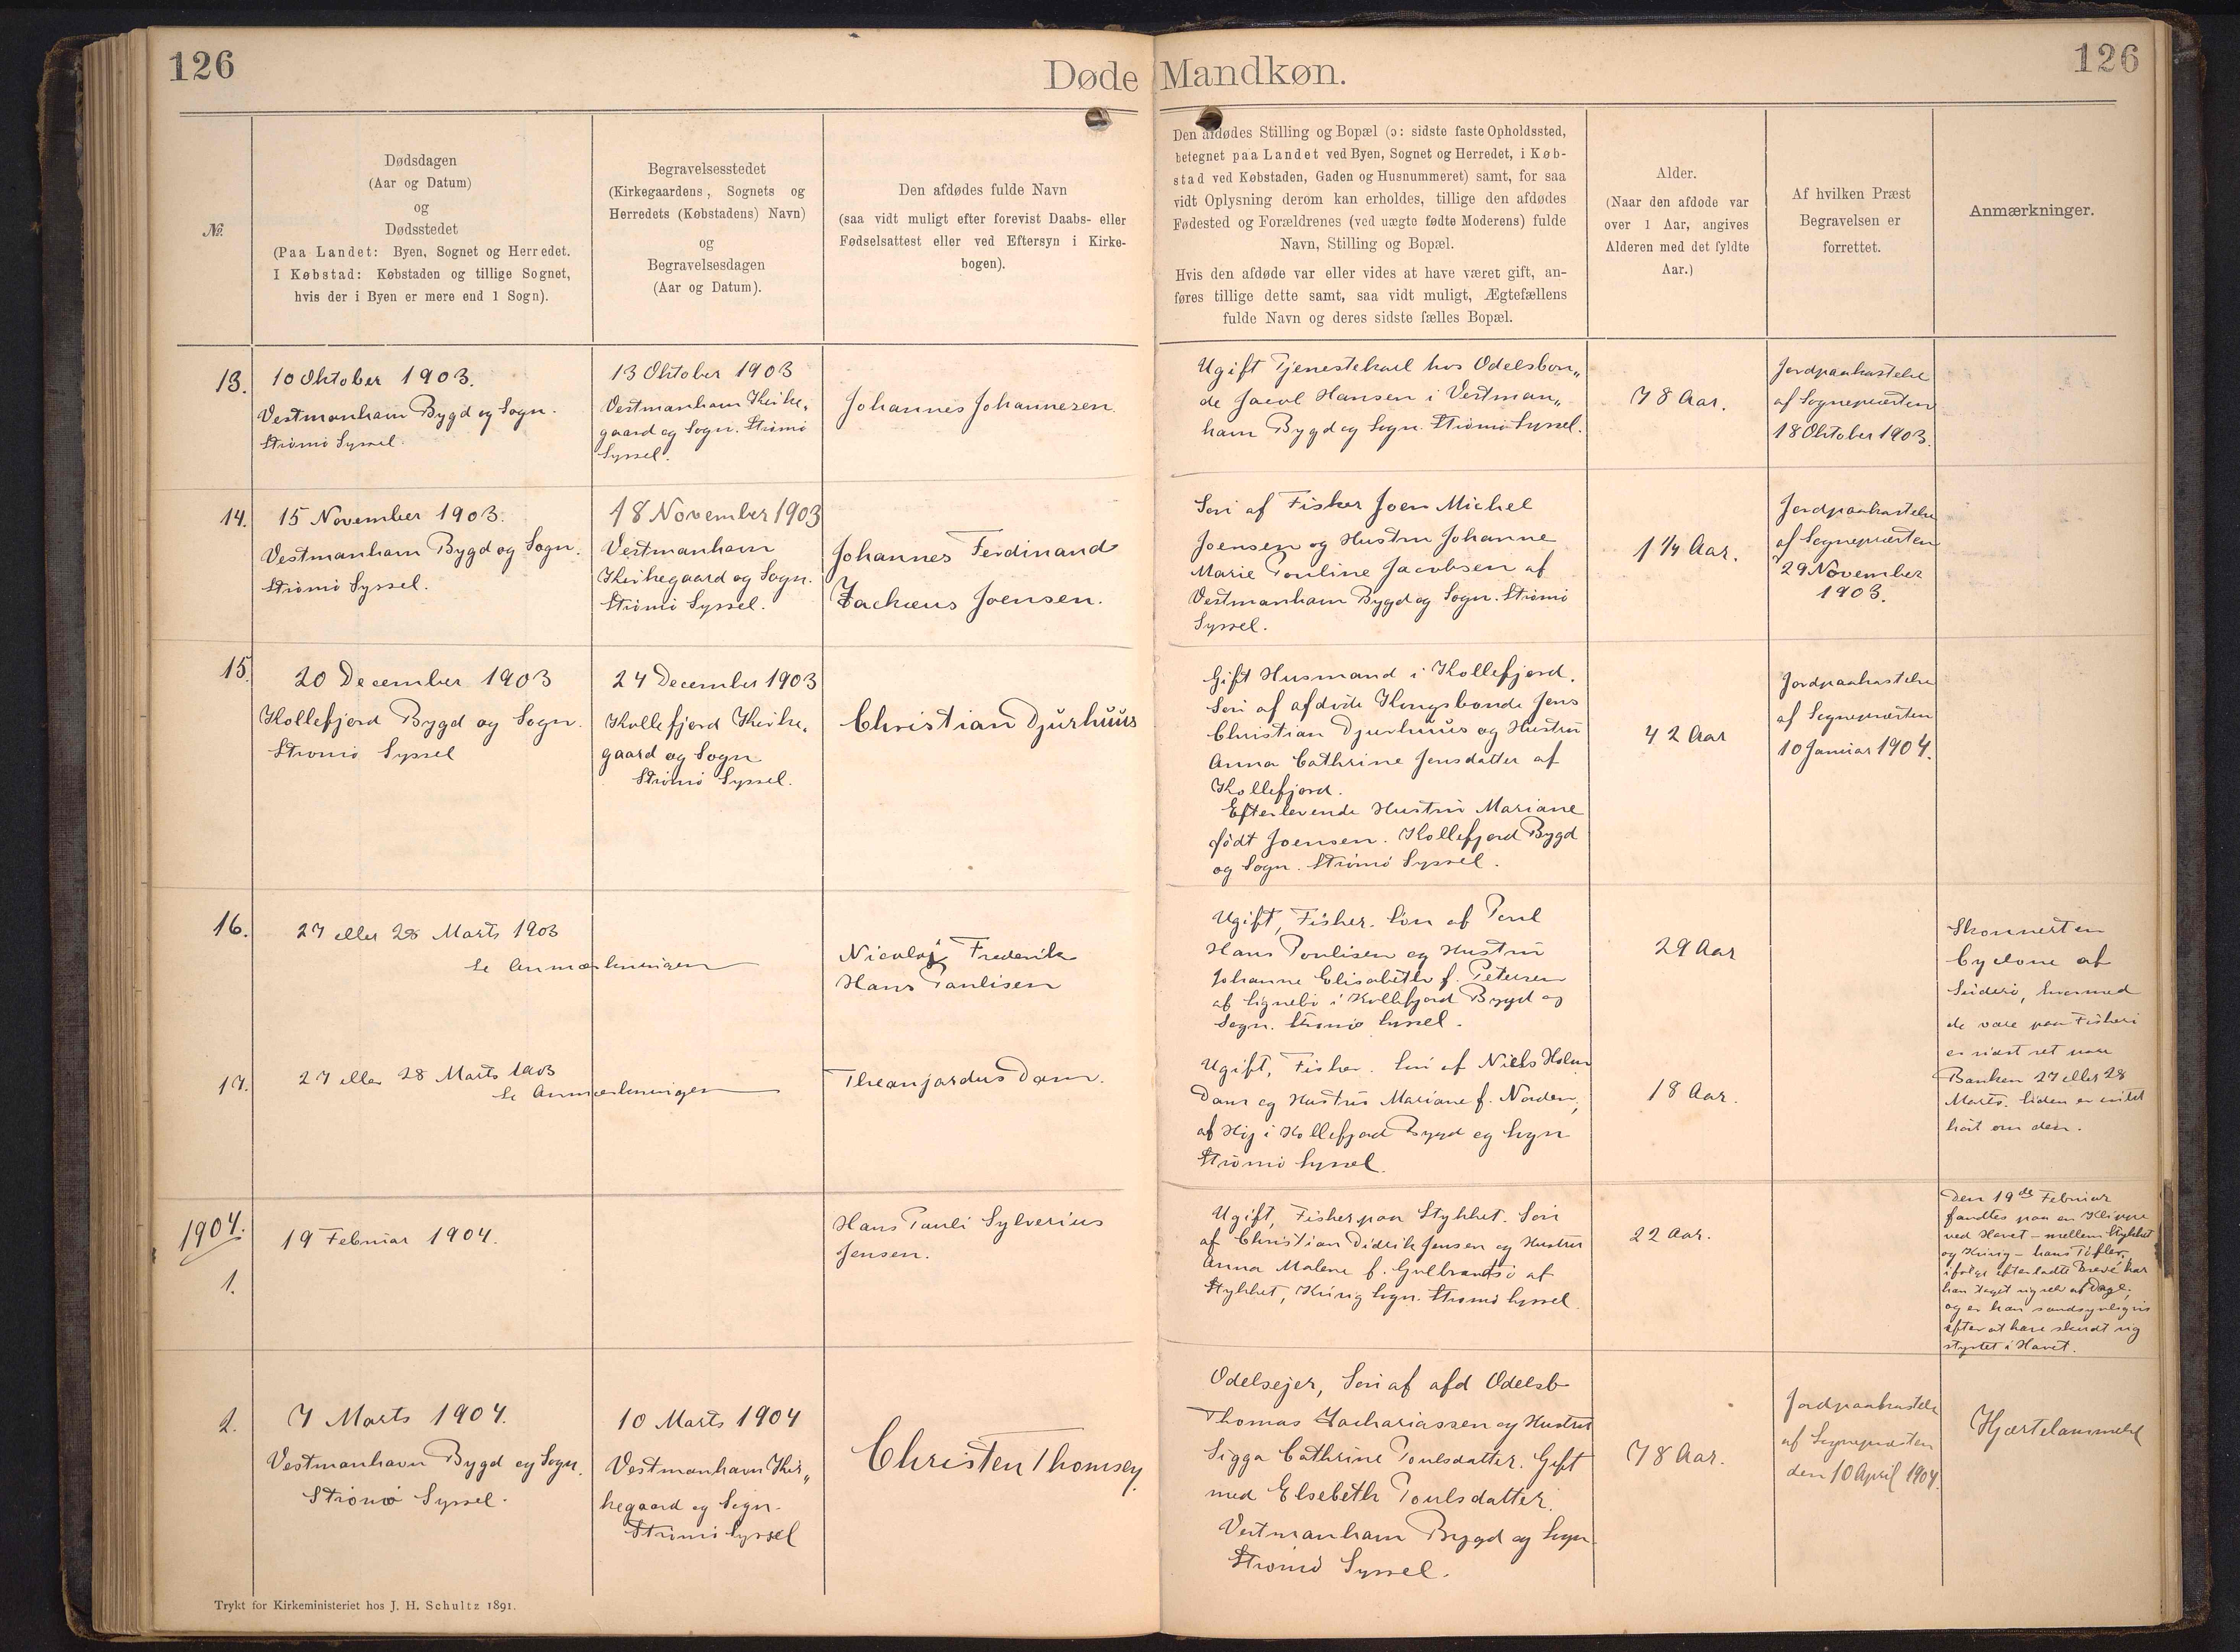 126
Døde Mandkøn.
126
№
Dødsdagen
(Aar og Datum)
og
Dødsstedet
(Paa Landet: Byen, Sognet og Herredet.
I Købstad: Købstaden og tillige Sognet,
hvis der i Byen er mere end 1 Sogn).
Begravelsesstedet
(Kirkegaardens, Sognets og
Herredets (Købstadens) Navn)
og
Begravelsesdagen
(Aar og Datum).
Den afdødes fulde Navn
(saa vidt muligt efter forevist Daabs- eller
Fødselsattest eller ved Eftersyn i Kirke-
bogen).
Den afdødes Stilling og Bopæl (ɔ: sidste faste Opholdssted,
betegnet paa Landet ved Byen, Sognet og Herredet, i Køb-
stad ved Købstaden, Gaden og Husnummeret) samt, for saa
vidt Oplysning derom kan erholdes, tillige den afdødes
Fødested og Forældrenes (ved uægte fødte Moderens) fulde
Navn, Stilling og Bopæl.
Hvis den afdøde var eller vides at have været gift, an-
føres tillige dette samt, saa vidt muligt, Ægtefællens
fulde Navn og deres sidste fælles Bopæl.
Alder.
(Naar den afdøde var
over 1 Aar, angives
Alderen med det fyldte
Aar.)
Af hvilken Præst
Begravelsen er
forrettet.
Anmærkninger.
13.
10 Oktober 1903.
Vestmanhavn Bygd og Sogn.
Strømø Syssel.
13 Oktober 1903
Vestmanhavn Kirke„
gaard og Sogn. Strømø
Syssel.
Johannes Johannesen.
Ugift Tjenestekarl hos Odelsbon„
de Jacob Hansen i Vestman„
havn Bygd og Sogn. Strømø Syssel.
78 Aar.
Jordpaakastelse
af Sognepræsten
18 Oktober 1903.
14.
15 November 1903.
Vestmanhavn Bygd og Sogn.
Strømø Syssel.
18 November 1903
Vestmanhavn
Kirkegaard og Sogn.
Strømø Syssel.
Johannes Ferdinand
Zachæus Joensen.
Søn af Fisker Joen Michel
Joensen og Hustru Johanne
Marie Pouline Jacobsen af
Vestmanhavn Bygd og Sogn. Strømø
Syssel.
1 1/4 Aar.
Jordpaakastelse
af Sognepræsten
29 November
1903.
15.
20 December 1903
Kollefjord Bygd og Sogn.
Strømø Syssel
24 December 1903
Kollefjord Kirke„
gaard og Sogn
Strømø Syssel.
Christian Djurhuus
Gift Husmand i Kollefjord.
Søn af afdøde Kongsbonde Jens
Christian Djurhuus og Hustru
Anna Cathrine Jensdatter af
Kollefjord.
Efterlevende Hustru Mariane
født Joensen. Kollefjord Bygd
og Sogn. Strømø Syssel.
42 Aar
Jordpaakastelse
af Sognepræsten
10 Januar 1904.
16.
27 eller 28 Marts 1903
Se Anmærkningen
Nicolaj Frederik
Hans Poulisen
Ugift, Fisker. Søn af Poul
Hans Poulisen og Hustru
Johanne Elisabeth f. Petersen
af Signebø i Kollefjord Bygd og
Sogn. Strømø Syssel.
29 Aar
Skonnerten
Cyclone af
Suderø, hvormed
de vare paa Fiskeri
er sidst set paa
Banken 27 eller 28
Marts. Siden er intet
hørt om den.
17.
27 eller 28 Marts 1903
Se Anmærkningen
Theanjardus Dam.
Ugift, Fisker. Søn af Niels Holm
Dam og Hustru Mariane f. Norden,
af Høj i Kollefjord Bygd og Sogn
Strømø Syssel.
18 Aar.
1904.
1.
19 Februar 1904.
Hans Pauli Sylverius
Jensen.
Ugift, Fisker paa Stykket. Søn
af Christian Didrik Jensen og Hustru
Anna Malene f. Gulbrandsø af
Stykket, Kvivig Sogn. Strømø Syssel.
22 Aar.
Den 19de Februar
fandtes paa en Klippe
ved Havet – mellem Stykket
og Kvivig – hans Tøfler,
ifølge efterladte Breve har
han taget sig selv af Dage,
og er han sandsynligvis
efter at have skudt sig
styrtet i Havet.
2.
7 Marts 1904.
Vestmanhavn Bygd og Sogn.
Strømø Syssel.
10 Marts 1904
Vestmanhavn Kir„
kegaard og Sogn.
Strømø Syssel
Christen Thomsen.
Odelsejer, Søn af afd Odelsb
Thomas Zachariassen og Hustru
Sigga Cathrine Poulsdatter. Gift
med Elsebeth Poulsdatter.
Vestmanhavn Bygd og Sogn.
Strømø Syssel.
78 Aar.
Jordpaakastelse
af Sognepræsten
den 10 April 1904.
Hjærtelammelse
Trykt for Kirkeministeriet hos J. H. Schultz 1891.